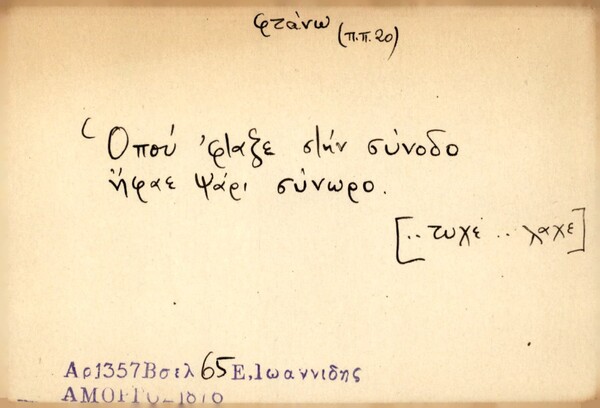 φτάνω (π.π.20)
Ὁπού 'φταξε στήν σύνοδο
ἤφαε ψάρι σύνωρο.
[..τυχε .. λαχε]
Αρ1357Βσελ65Ε,Ιωαννιδης